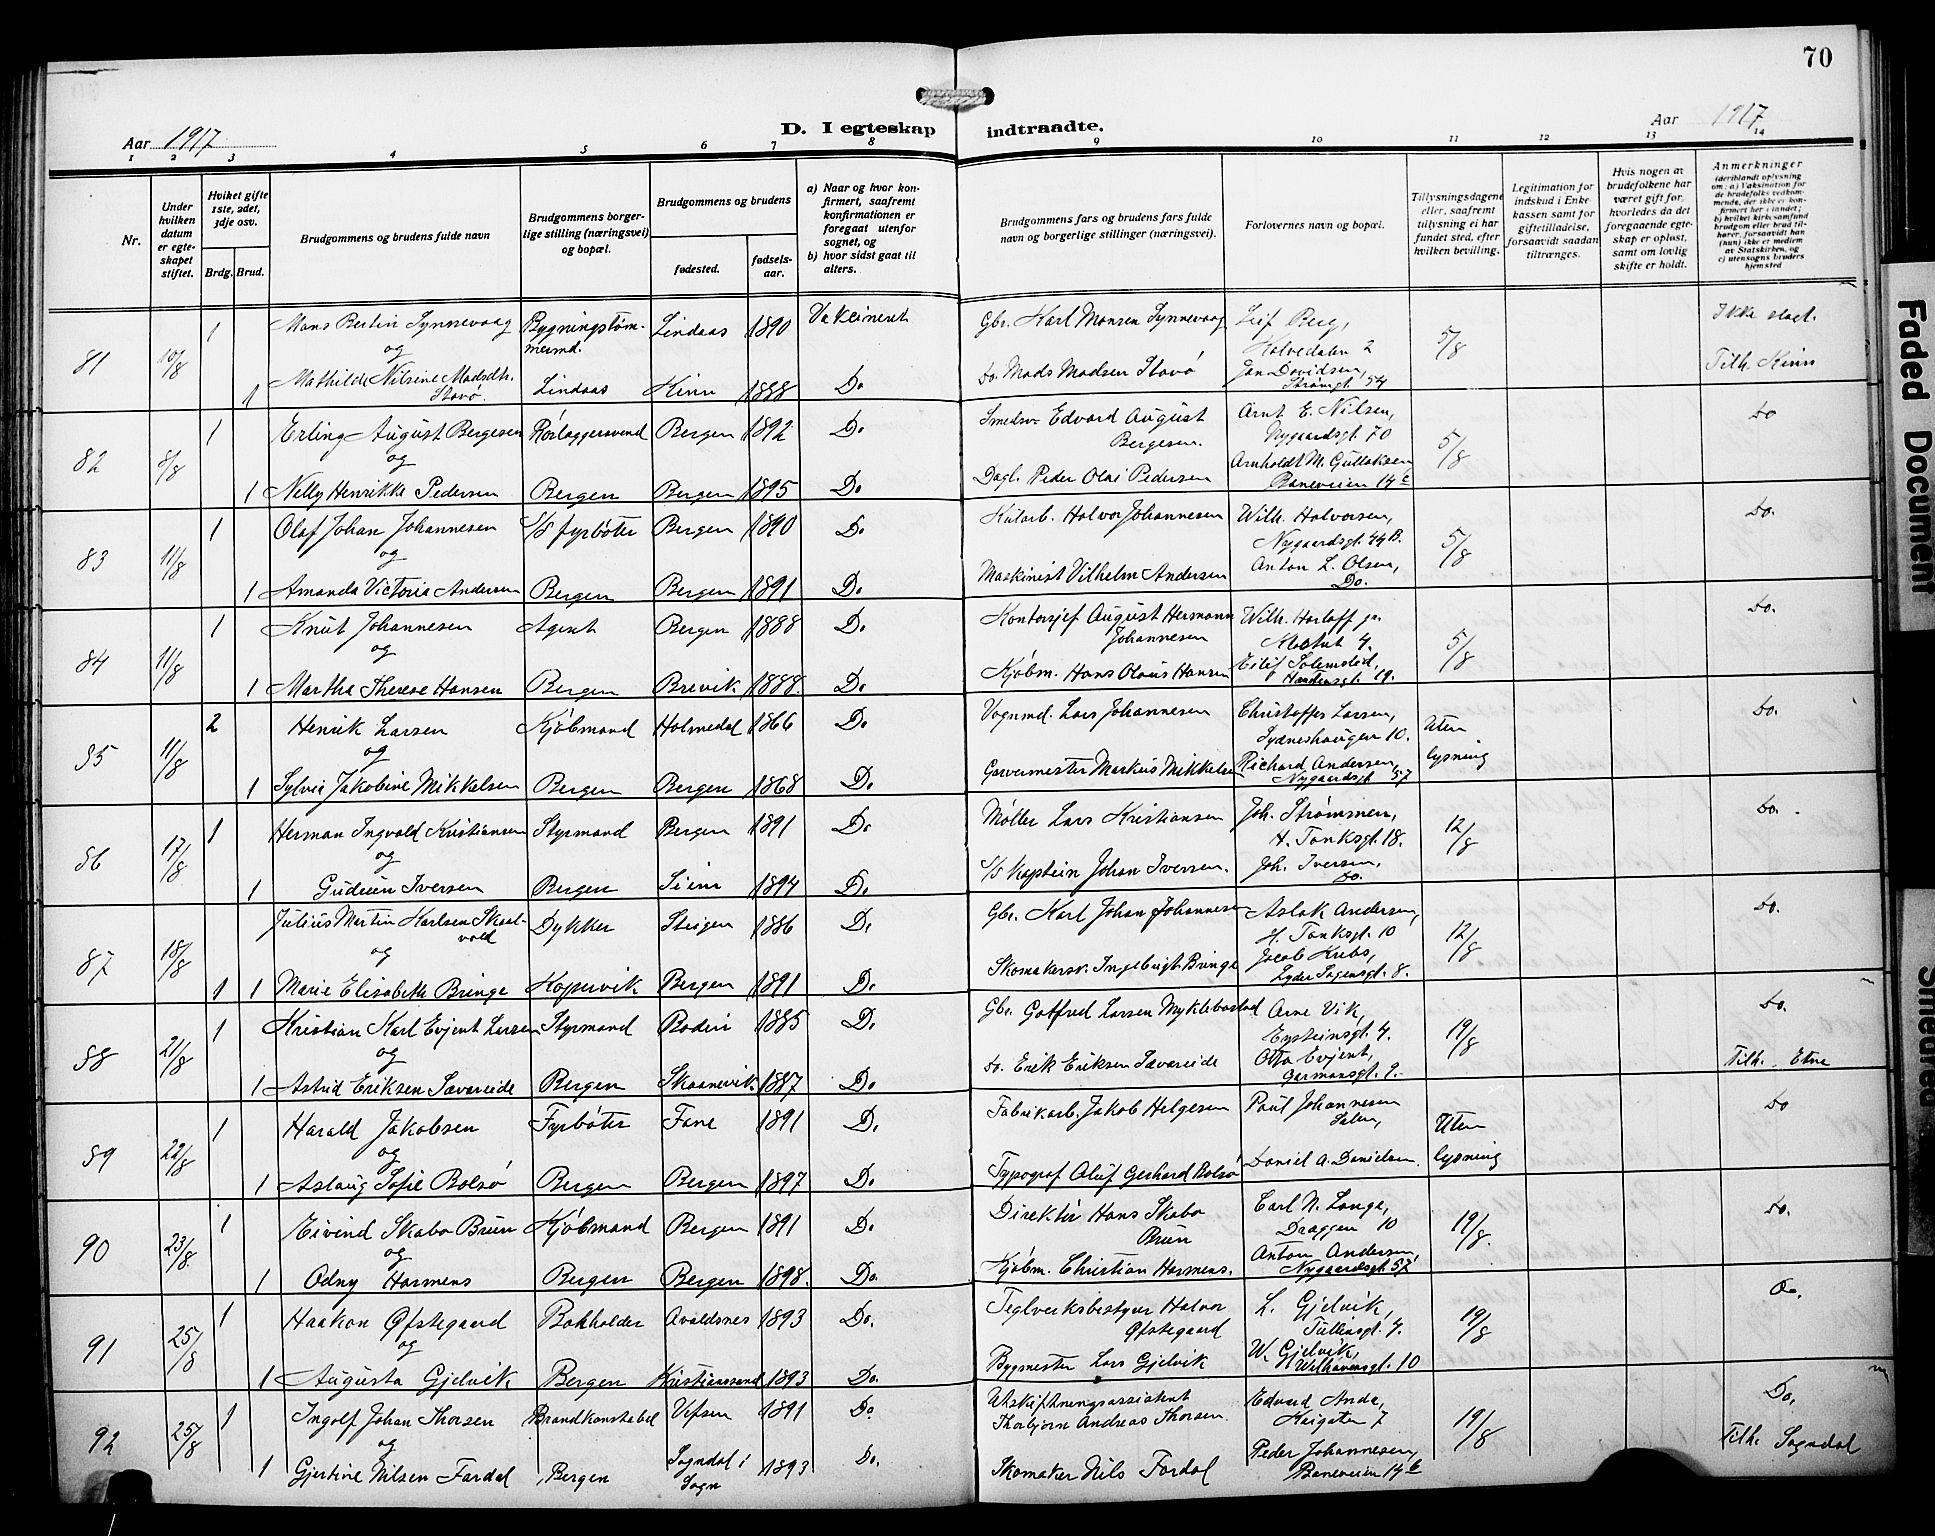 70
D. I egteskap indtraadte.
Aar 1917
Aar 1917
1 2 3 4 5 6 7 8 9 10 11 12 13 14
Nr.
Under hvilken datum er egteskapet stiftet.
Hviket gifte 1ste, 2det, 3dje osv.
Brdg. Brud.
Brudgommens og brudens fulde navn
Brudgommens borgerlige stilling (næringsvei) og bopæl.
Brudgommens og brudens
fødested. fødselsaar.
a) Naar og hvor konfirmert, saafremt konfirmationen er foregaat utenfor sognet, og
b) hvor sidst gaat til alters.
Brudgommens fars og brudens fars fulde navn og borgerlige stillinger (næringsvei).
Forlovernes navn og bopæl.
Tillysningsdagene eller, saafremt tillysning ei har fundet sted, efter hvilken bevilling.
Legitimation for indskud i Enkekassen samt for giftetilladelse, forsaavidt saadan tiltrænges.
Hvis nogen av brudefolkene har været gift før, hvorledes da det foregaaende egteskap er opløst, samt om lovlig skifte er holdt.
Anmerkninger (deriblandt oplysning om: a) Vaksination for de brudefolks vedkommende, der ikke er konfirmert her i landet; b) hvilket kirkesamfund brudgom eller brud tilhører, forsaavidt han (hun) ikke er medlem av Statskirken, og c) utensogns bruders hjemsted
81 10/8 1 Mons Bertin Synnevaag Bygningstømmermd. Lindaas 1890 Vakcineret Gbr. Karl Monsen Synnevaag Leif Berg, 5/8 Ikke slegt.
og Holvedalen 2
1 Mathilde Nilsine Madsdtr. Stavø. Lindaas Kinn 1888 Do Do. Mads Madsen Stavø Jan Davidsen, Strømgt 54 Tilh. Kinn
82 8/8 1 Erling August Bergesen Rørlæggersvend Bergen 1892 Do Smedsv. Edvard August Bergesen. Arnt E. Nilsen, Nygaardsgt. 70 5/8 Do
og
1 Nelly Henrikke Pedersen Bergen Bergen 1895 Do Dagl. Peder Olai Pedersen Arnholdt M. Gullaksen, Baneveien 14c
83 11/8 1 Olaf Johan Johannesen S/S fyrbøter Bergen 1890 Do Kularb. Halvor Johannesen Wilh. Halvorsen, Nygaardsgt. 44B. 5/8 Do.
og
1 Amanda Victoria Andersen Bergen Bergen 1891 Do Maskinist Vilhelm Andersen Anton L. Olsen, Do.
84 11/8 1 Knut Johannesen Agent Bergen 1888 Do Kontorsjef August Hermann Johannesen Wilh. Harloff jr. 4. 5/8 Do.
og
1 Martha Therese Hansen Bergen Brevik 1888. Do Kjøbm. Hans Olaus Hansen Eilif 19.
85 11/8 2 Henrik Larsen Kjøbmand Holmedal 1866 Do Vognmd. Lars Johannesen Christoffer Larsen, Sydneshaugen 10. Uten lysning Do.
og
1 Sylvia Jakobine Mikkelsen Bergen Bergen 1868 Do. Garvermester Markus Mikkelsen Richard Andersen, Nygaardsgt 57
86 17/8 1 Herman Ingvald Kristiansen Styrmand Bergen 1891 Do Møller Lars Kristiansen Joh. Strømmen, H. Tanksgt. 18. 12/8 Do.
og
1 Gudrun Iversen Bergen Seim 1894 Do. S/S Kaptein Johan Iversen. Joh. Iversen, Do.
87 18/8 1 Julius Martin Karlsen Skaalvold Dykker Steigen 1886 Do Gbr. Karl Johan Johannesen Aslak Andersen, H. Tanksgt. 10 12/8 Do.
og
1 1 Marie Elisabeth Bringe Kopervik Bergen 1891 Do. Skomakersv. Ingebrigt Bringe Jacob Kubs, Lyder Sagensgt. 8.
88 21/8 1 Kristian Karl Evjent Larsen Styrmand Bodin 1885 Do Gbr. Gotfred Larsen Myklebostad Arne Vik, Eysteinsgt. 4. 19/8 Do.
og
1 Astrid Eriksen Savareide Bergen Skaanevik 1887 Do Do. Erik Eriksen Savareide Otto Evjent, Gormsgt. 9. Tilh. Etne
89 22/8 1 Harald Jakobsen Fyrbøter Fane 1891 Do Fabrikarb. Jakob Helgesen Paul Johannesen Salen, Uten lysning Do
og
1 Aslaug Sofie Bolsø Bergen Bergen 1897 Do. Typograf Oluf Gerhard Bolsø Daniel A. Danielsen.
90 23/8 1 Eivind Skabo Brun Kjøbmand Bergen 1891 Do Direktør Hans Skabo Brun Carl N. Lange, Dræggen 10 19/8. Do.
og
1 Odny Harmens Bergen Bergen 1898. Do. Kjøbm. Christian Harmens. Anton Andersen, Nygaardsgt. 57
91 25/8 1 Haakon Øfstegaard Bokholder Avaldsnes 1893 Do. Teglverksbestyrer Halvor Øfstegaard L. Gjelvik, Tullinsgt. 4. 19/8 Do.
og
1 Augusta Gjelvik Bergen Kristianssund 1893 Do. Bygmester Lars Gjelvik W. Gjelvik, Welhavensgt. 10
92 25/8 1 Ingolf Johan Thorsen Brandkonstabel Vefsen 1891 Do Utskiftningsassistent Thorbjørn Andreas Thorsen. Edvard Anda, Kaigaten 7 19/8 Do,
og
1 Gjertine Nilsen Fardal Bergen Sogndal i Sogn 1893 Do. Skomaker Nils Fardal Peder Johannesen, Baneveien 14b Tilh. Sogndal
Faded Document
Smeared